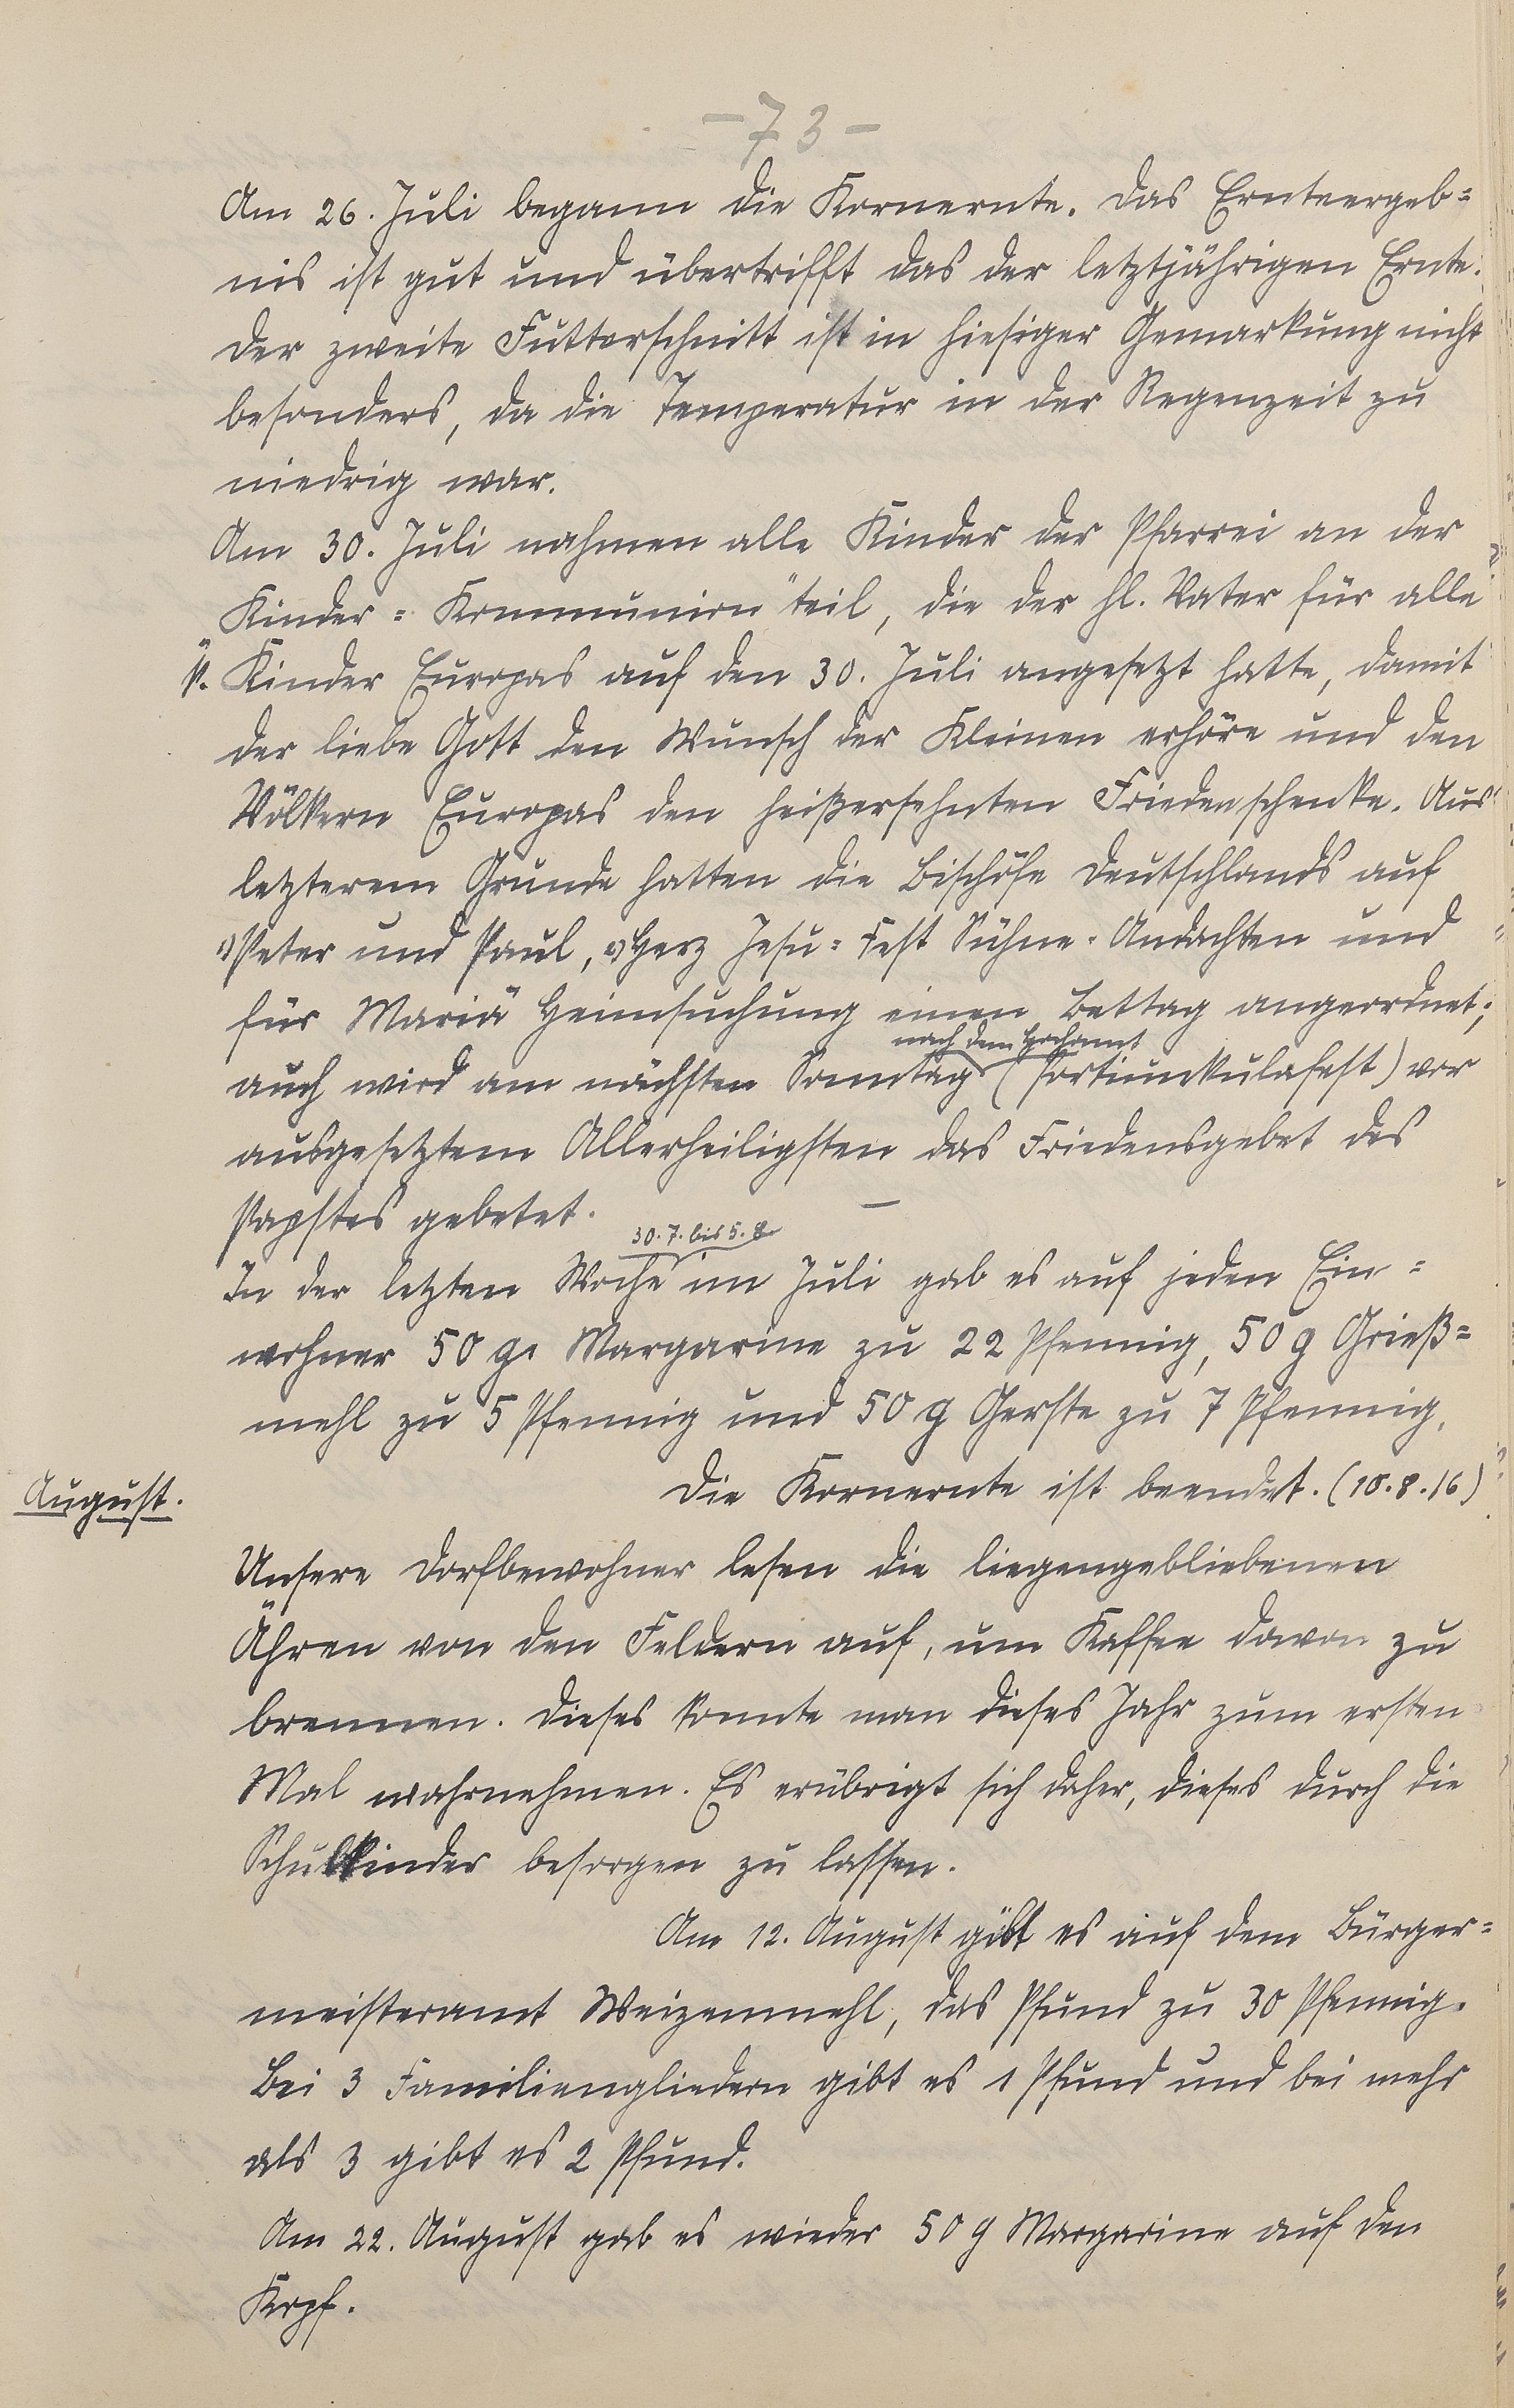 -73-
Am 26. Juli begann die Kornernte. Das Ernteergeb=
nis ist gut und übertrifft das der letztjährigen Ernte.
Der zweite Futterschnitt ist in hiesiger Gemarkung nicht
besonders, da die Temperatur in der Regenzeit zu
niedrig war.
Am 30. Juli nahmen alle Kinder der Pfarrei an der
Kinder=Kommunion" teil, die der hl. Vater für alle
Kinder Europas auf den 30. Juli angesetzt hatte, damit
der liebe Gott den Wunsch der Kleinen erhöre und den
Völkern Europas den heißersehnten Frieden schenke. Aus
letzterem Grunde hatten die Bischöfe Deutschlands auf
1) Peter und Paul, 2) Herz Jesu=Fest Sühne-Andachten und
für Mariä Heimsuchung einen Bettag angeordnet;
nach dem Hochamt
auch wird am nächsten Sonntag (Portiunkulafest) vor
ausgesetztem Allerheiligsten das Friedensgebet des
Papstes gebetet. —
30.7. bis 5.8.
In der letzten Woche im Juli gab es auf jeden Ein=
wohner 50 gr Margarine zu 22 Pfennig, 50 g Grieß=
mehl zu 5 Pfennig und 50 g Gerste zu 7 Pfennig.
August.
Die Kornernte ist beendet. (10.8.16)
Unsere Dorfbewohner lesen die liegengebliebenen
Ähren von den Feldern auf, um Kaffee davon zu
brennen. Dieses konnte man dieses Jahr zum ersten
Mal wahrnehmen. Es erübrigt sich daher, dieses durch die
Schulkinder besorgen zu lassen.
Am 12. August gibt es auf dem Bürger=
meisteramt Weizenmehl, das Pfund zu 30 Pfennig.
Bei 3 Familiengliedern gibt es 1 Pfund und bei mehr
als 3 gibt es 2 Pfund.
Am 22. August gab es wieder 50 g Margarine auf den
Kopf.